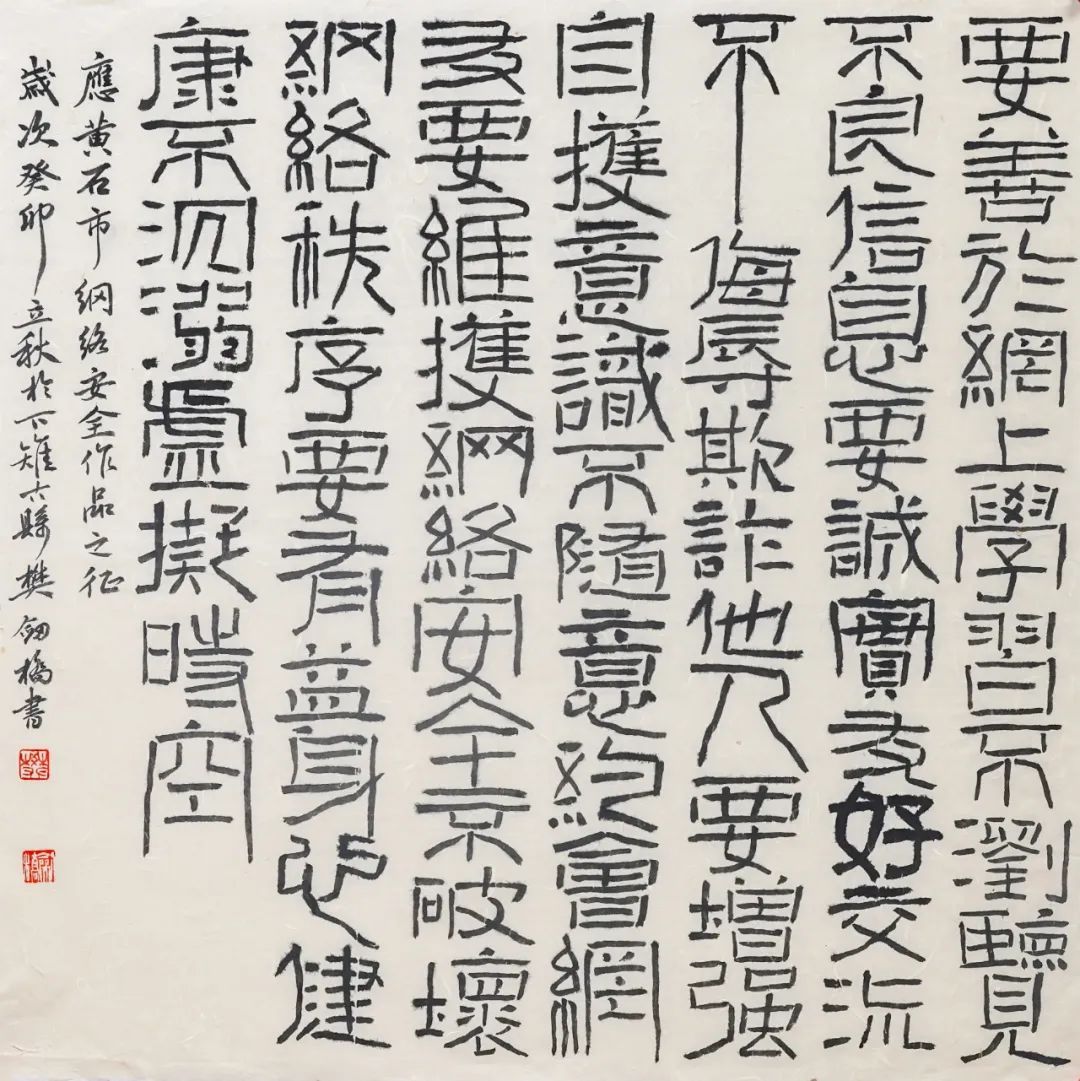 要善於網上學習不瀏覽
不良信息要誠實友好交流
不侮辱欺詐他人要增强
自擭意識不隨意約會網
友要維擭網絡安全不破壞
網絡秩序要有益身心健
康不沉溺虛擬時空
應黄石市網絡安全作品之征
歲次癸卯立秋於下雉古縣樊劍橋書